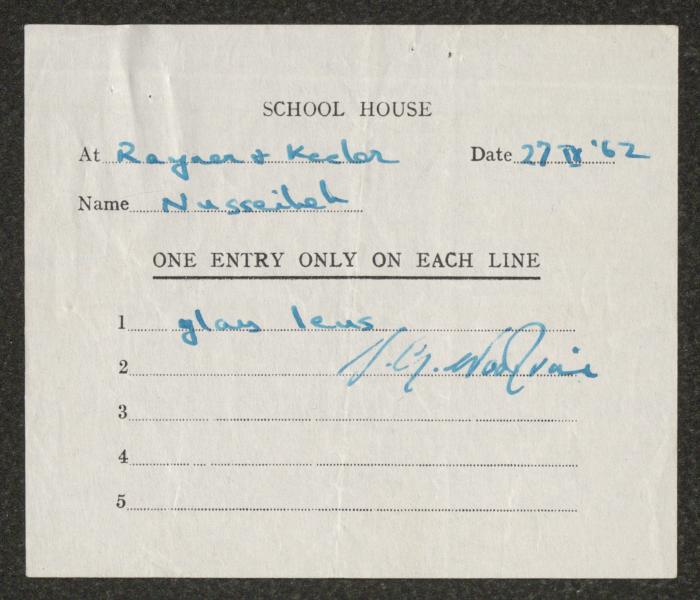 SCHOOL HOUSE
At Rayner & Keeler Date 27 IX '62
Name Nusseibeh
ONE ENTRY ONLY ON EACH LINE
1 glass lens
2
3
4
5